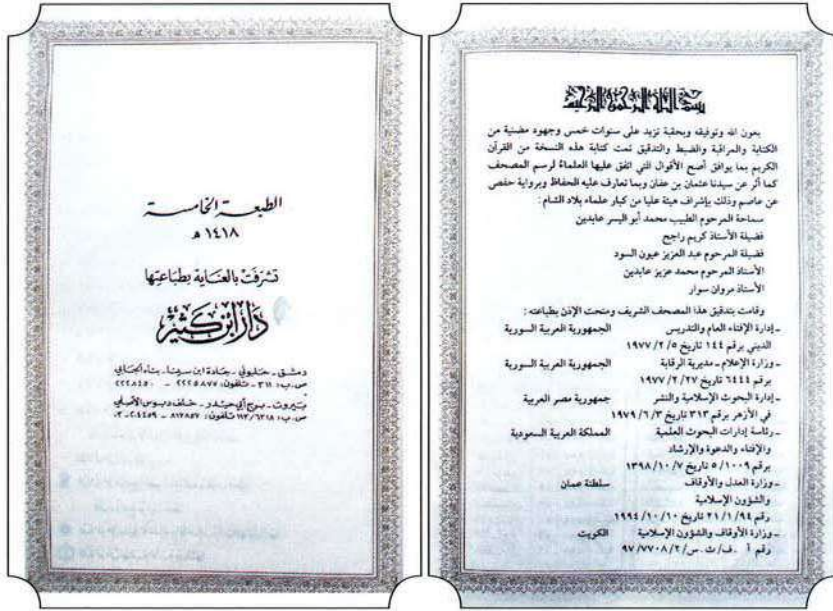 بسم الله الرحمن الرحيم
بعون الله وتوفيقه وبحقبة تزيد على سنوات خمس وجهود مضنية من
الكتابة والمراقبة والضبط والتدقيق تمت كتابة هذه النسخة من القرآن
الكريم بما يوافق أصح الأقوال التي اتفق عليها العلماء لرسم المصحف
كما أثر عن سيدنا عثمان بن عفان وبما تعارف عليه الحفاظ وبرواية حفص
عن عاصم وذلك بإشراف هيئة عليا من كبار علماء بلاد الشام :
سماحة المرحوم الطبيب محمد أبو اليسر عابدين
فضيلة الأستاذ كريم راجح
فضيلة المرحوم عبد العزيز عيون السود
الأستاذ المرحوم محمد عزيز عابدين
الأستاذ مروان سوار
وقامت بتدقيق هذا المصحف الشريف ومنحت الإذن بطباعته :
ـ إدارة الإفتاء العام والتدريس الجمهورية العربية السورية
الديني برقم ١٤٤ تاريخ ١٩٧٧/٢/٥
ـ وزارة الإعلام ـ مديرية الرقابة الجمهورية العربية السورية
برقم ١٤٤٤ تاريخ ١٩٧٧/٢/٢٧
ـ إدارة البحوث الإسلامية والنشر جمهورية مصر العربية
في الأزهر برقم ٣١٣ تاريخ ١٩٧٩/٦/٣
ـ رئاسة إدارات البحوث العلمية المملكة العربية السعودية
والإفتاء والدعوة والإرشاد
برقم ٥/١٠٠٩ تاريخ ١٣٩٨/١٠/٧
ـ وزارة العدل والأوقاف سلطنة عمان
والشؤون الإسلامية
رقم ٢١/١/٩٤ تاريخ ١٩٩٤/١٠/١٠
ـ وزارة الأوقاف والشؤون الإسلامية الكويت
رقم أ . ف/ث.س/٩٧/٧٧٠٨/٢
الطبعة الخامسة
١٤١٨ هـ
تشرفت بالعناية بطباعتها
دار ابن كثير
دمشق ـ حلبوني ـ جادة ابن سينا ـ بناء الجابي
ص.ب: ٣١١ ـ تلفون: ٢٢٢٥٨٧٧ ـ ٢٢٢٨٤٥٠
بيروت ـ برج أبي حيدر ـ خلف دبوس الأصلي
ص.ب: ١١٣/٦٣١٨ تلفون: ٨١٧٨٥٧ ـ ٠٣-٢٠٤٤٥٩